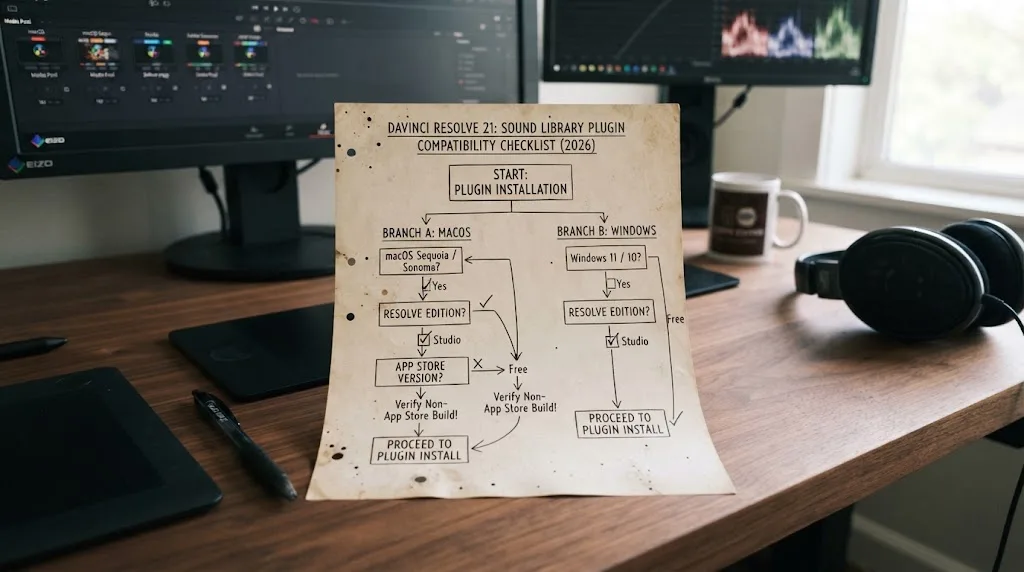 DAVINCI RESOLVE 21: SOUND LIBRARY PLUGIN
COMPATIBILITY CHECKLIST (2026)
START:
PLUGIN INSTALLATION
BRANCH A: MACOS
macOS Sequoia /
Sonoma?
Yes
RESOLVE EDITION?
Studio
APP STORE
VERSION?
Free
Verify Non-
App Store Build!
Verify Non-
App Store Build!
PROCEED TO
PLUGIN INSTALL
BRANCH B: WINDOWS
Windows 11 / 10?
Yes
RESOLVE EDITION?
Free
Studio
PROCEED TO
PLUGIN INSTALL
EIZO
EIZO